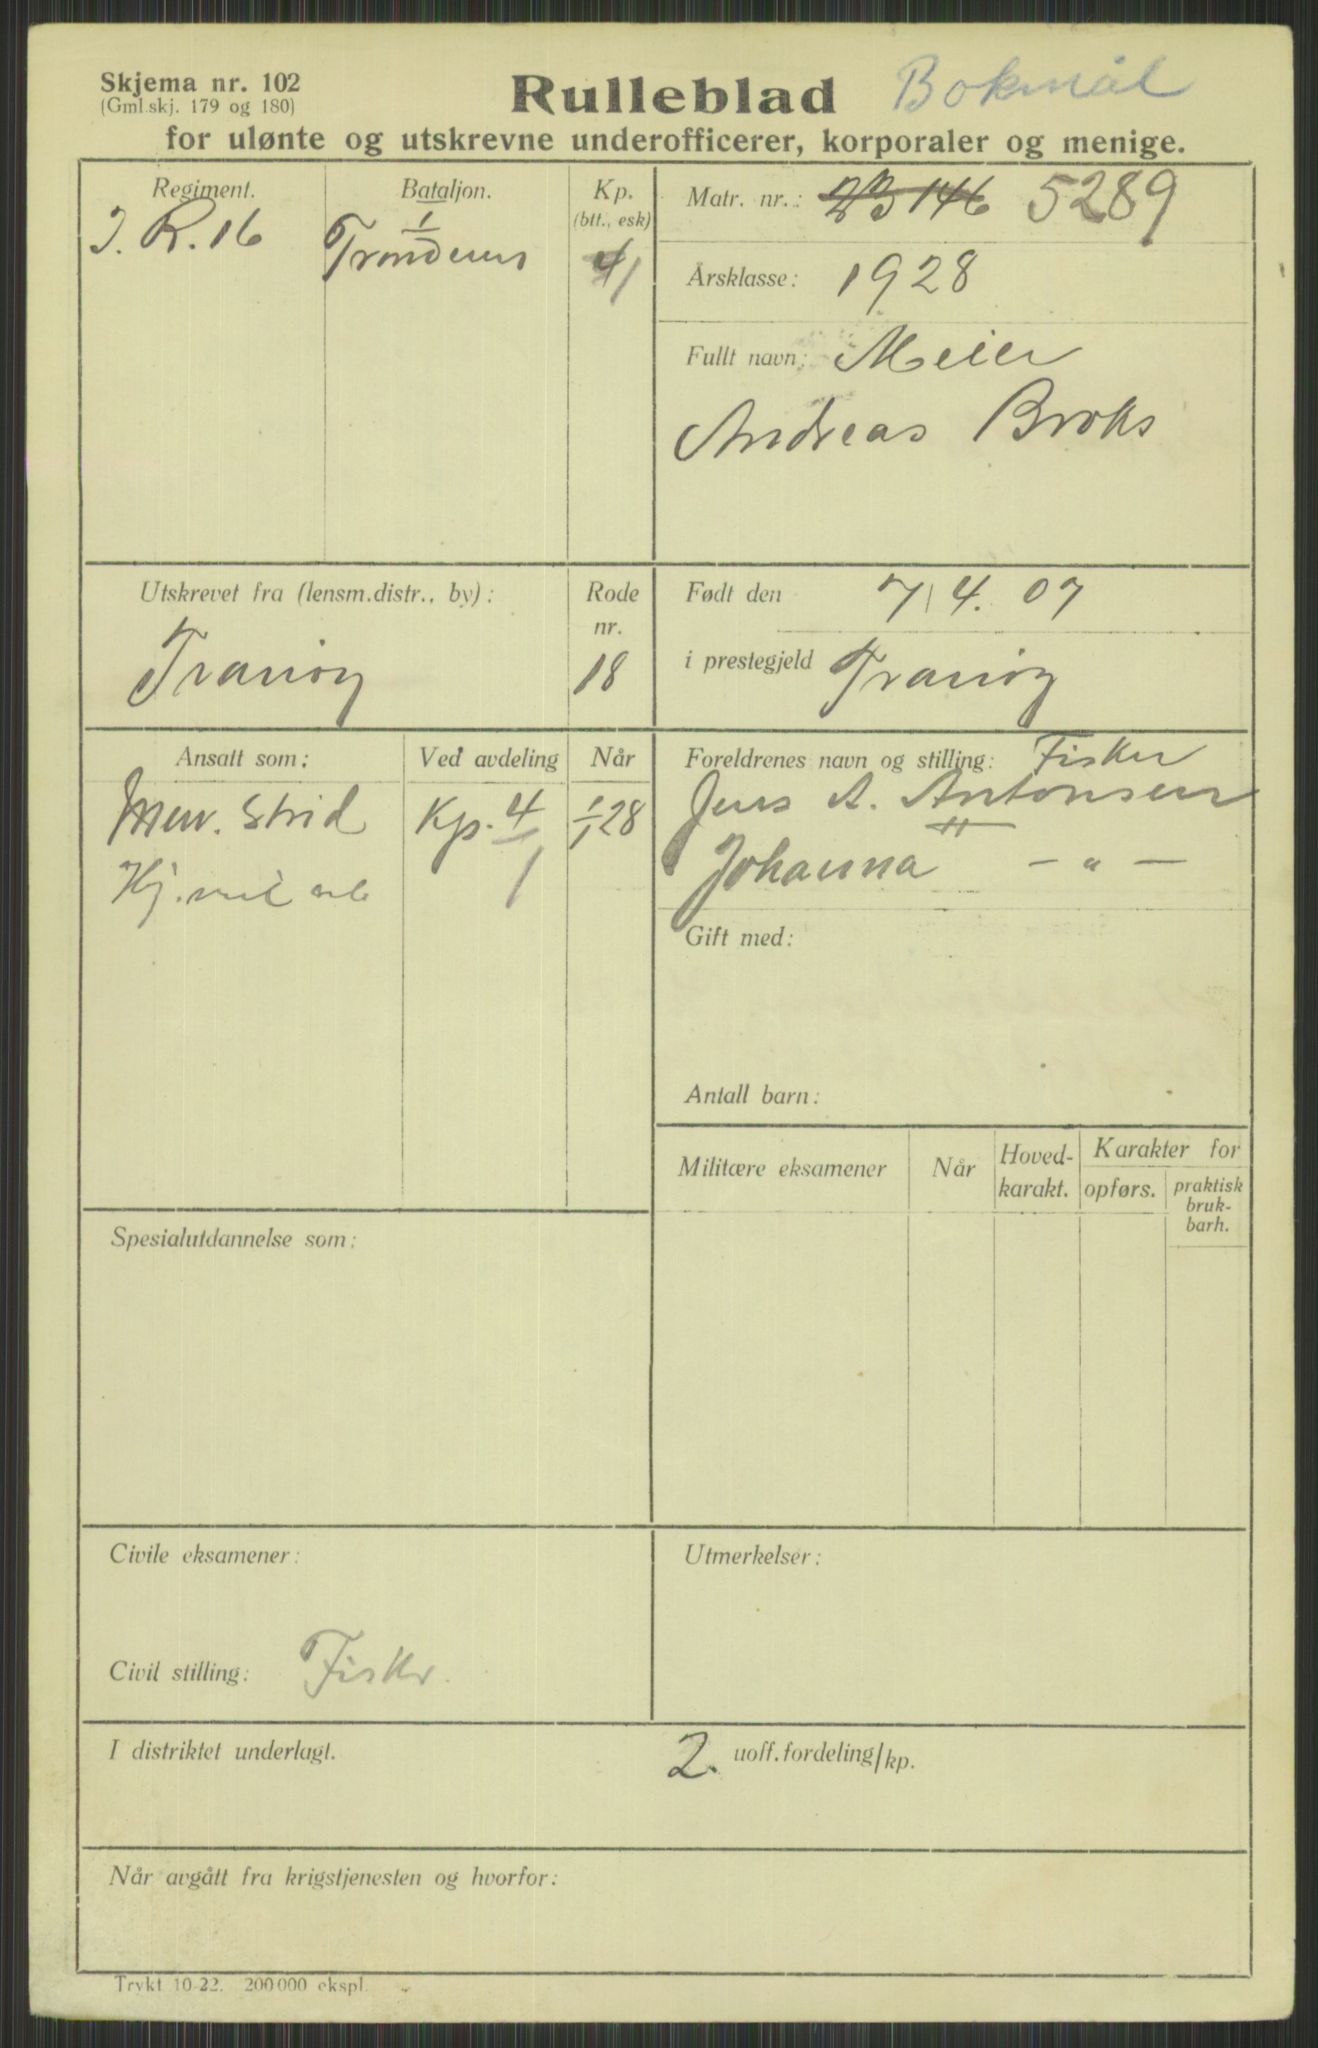 Skjema nr. 102
(Gml.skj. 179 og 180)
Rulleblad
Bokmål
for ulønte og utskrevne underofficerer, korporaler og menige.
Regiment.
J. R. 16
Bataljon.
1
Trondenes
Kp.
(btt., esk)
4/1
Matr. nr.: 5289
Årsklasse: 1928
Fullt navn: Meier
Andreas Broks
Utskrevet fra (lensm.distr., by):
Tranöy
Rode
nr.
18
Født den 7/4. 07
i prestegjeld Tranöy
Ansatt som:
Ved avdeling
Når
Men. Strid
Kp. 4
1/1 28
Hj.
1
Foreldrenes navn og stilling: Fisker
Jens A. Antonsen
Johanna — " —
Gift med:
Antall barn:
Militære eksamener
Når
Hoved-
karakt.
Karakter for
opførs.
praktisk
bruk-
barh.
Spesialutdannelse som:
Civile eksamener:
Civil stilling: Fisker.
Utmerkelser:
I distriktet underlagt.
2. uoff.fordeling/kp.
Når avgått fra krigstjenesten og hvorfor:
Trykt 10-22. 200 000 ekspl.